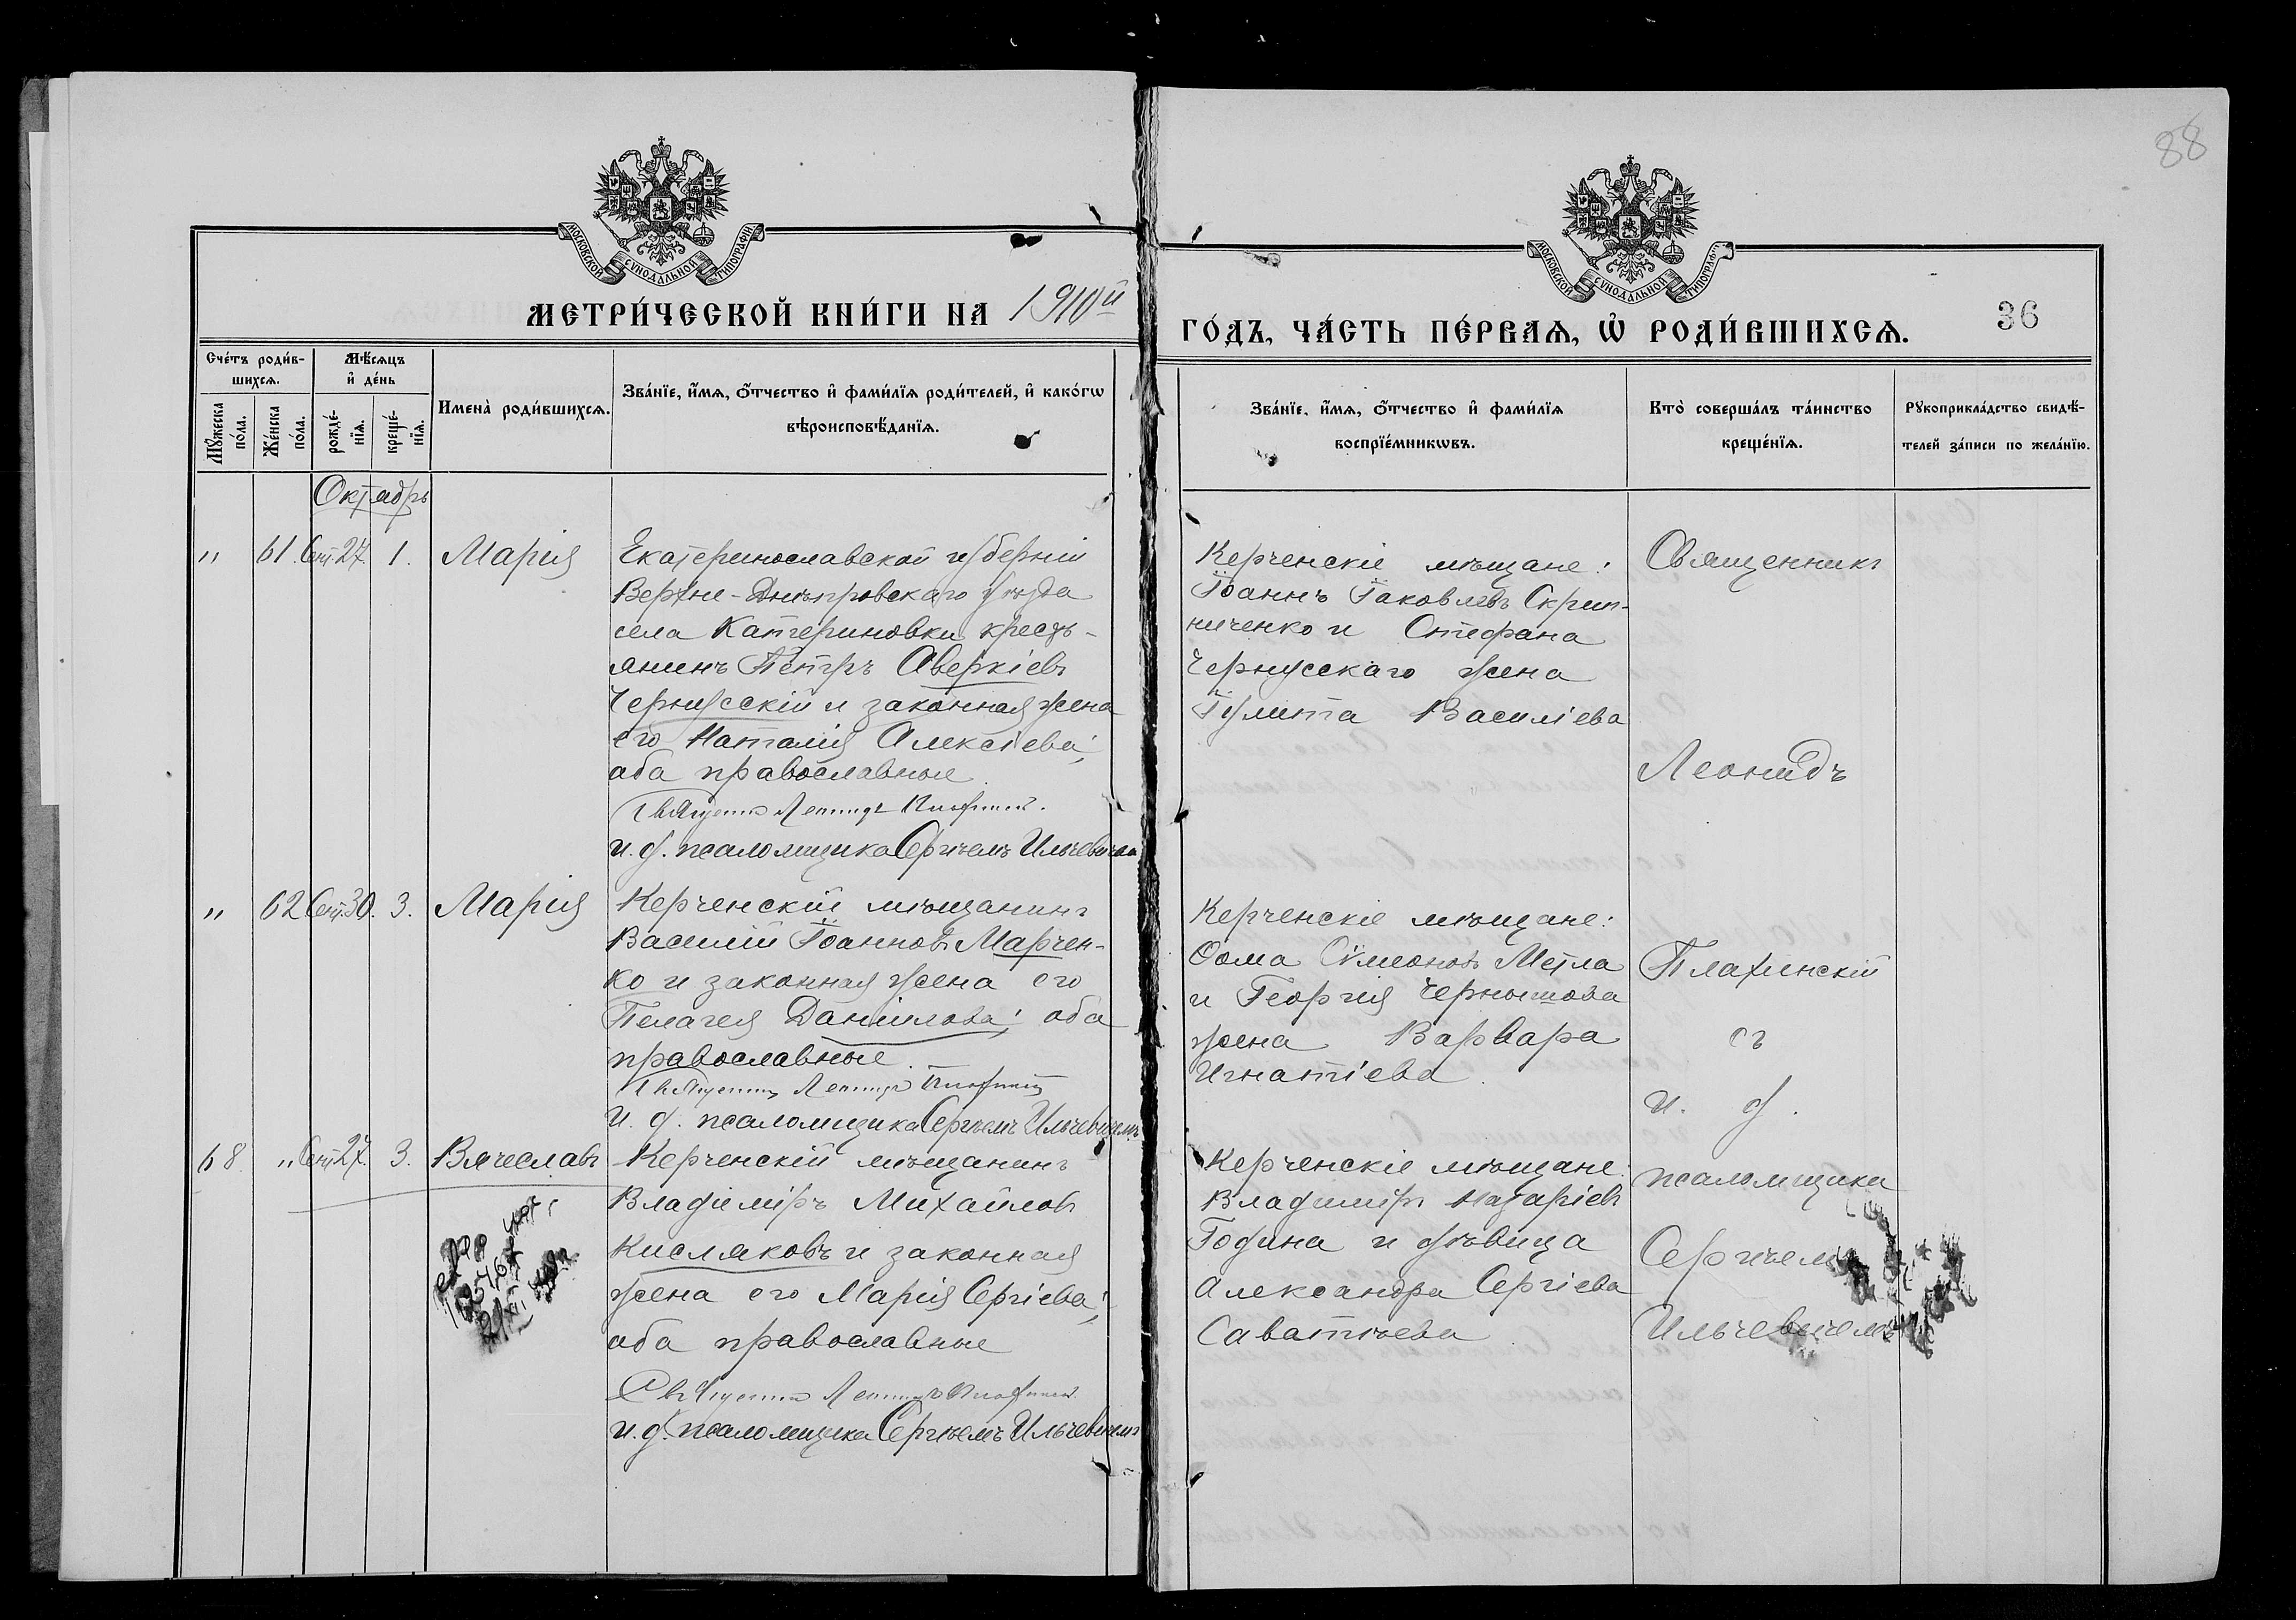 88
МОСКОВСКОЙ СѴНОДАЛЬНОЙ ТИПОГРАФІИ
МОСКОВСКОЙ СѴНОДАЛЬНОЙ ТИПОГРАФІИ
МЕТРИ́ЧЕСКОЙ КНИ́ГИ НА 1910й
ГО́ДЪ, ЧА́СТЬ ПЕ́РВАѦ, Ѡ҆ РОДИ́ВШИХСѦ.
36
Сче́тъ роди́в-
шихсѧ.
Мѣ́сѧцъ
и҆ де́нь
Мꙋ́жеска
по́ла.
Же́нска
по́ла.
рожде́-
нїѧ.
креще́-
нїѧ.
Имена̀ роди́вшихсѧ.
Зва́нїе, и҆́мѧ, ѻ҆́тчество и҆ фами́лїѧ роди́телей, и҆ како́гѡ
вѣроисповѣ́данїѧ.
Зва́нїе, и҆́мѧ, ѻ҆́тчество и҆ фами́лїѧ
воспрїе́мникѡвъ.
Кто̀ соверша́лъ та́инство
креще́нїѧ.
Рꙋкоприкла́дство свидѣ́-
телей за́писи по жела́нїю.
Октябрь
" 61. Сент. 27. 1. Марія
Екатеринославской губерніи
Верхне-Днѣпровскаго уѣзда
села Катериновки кресть-
янинъ Петръ Аверкіевъ
Чернусскій и законная жена
его Наталія Алексіева;
оба православные.
Священникъ Леонидъ Плахинскій.
и. д. псаломщика Сергіемъ Ильчевичемъ
Керченскіе мѣщане:
Іоаннъ Іаковлевъ Скрип-
ниченко и Стефана
Чернусскаго жена
Іулитта Василіева
Священникъ
Леонидъ
" 62 Сент. 30. 3. Марія
Керченскій мѣщанинъ
Василій Іоанновъ Марчен-
ко и законная жена его
Пелагея Даніилова; оба
православные.
Священникъ Леонидъ Плахинскій
и. д. псаломщика Сергіемъ Ильчевичемъ
Керченскіе мѣщане:
Ѳома Сѵмеоновъ Метла
и Георгія Чернышова
жена Варвара
Игнатіева.
Плахинскій
съ
и. д.
68. " Сент. 27. 3. Вячеславъ
Керченскій мѣщанинъ
Владиміръ Михайловъ
Кисляковъ и законная
жена его Марія Сергіева;
оба православные
Священникъ Леонидъ Плахинскій
и. д. псаломщика Сергіемъ Ильчевичемъ
Керченскіе мѣщане:
Владиміръ Назаріевъ
Година и дѣвица
Александра Сергіева
Саватѣева.
псаломщика
Сергіемъ
Ильчевичемъ